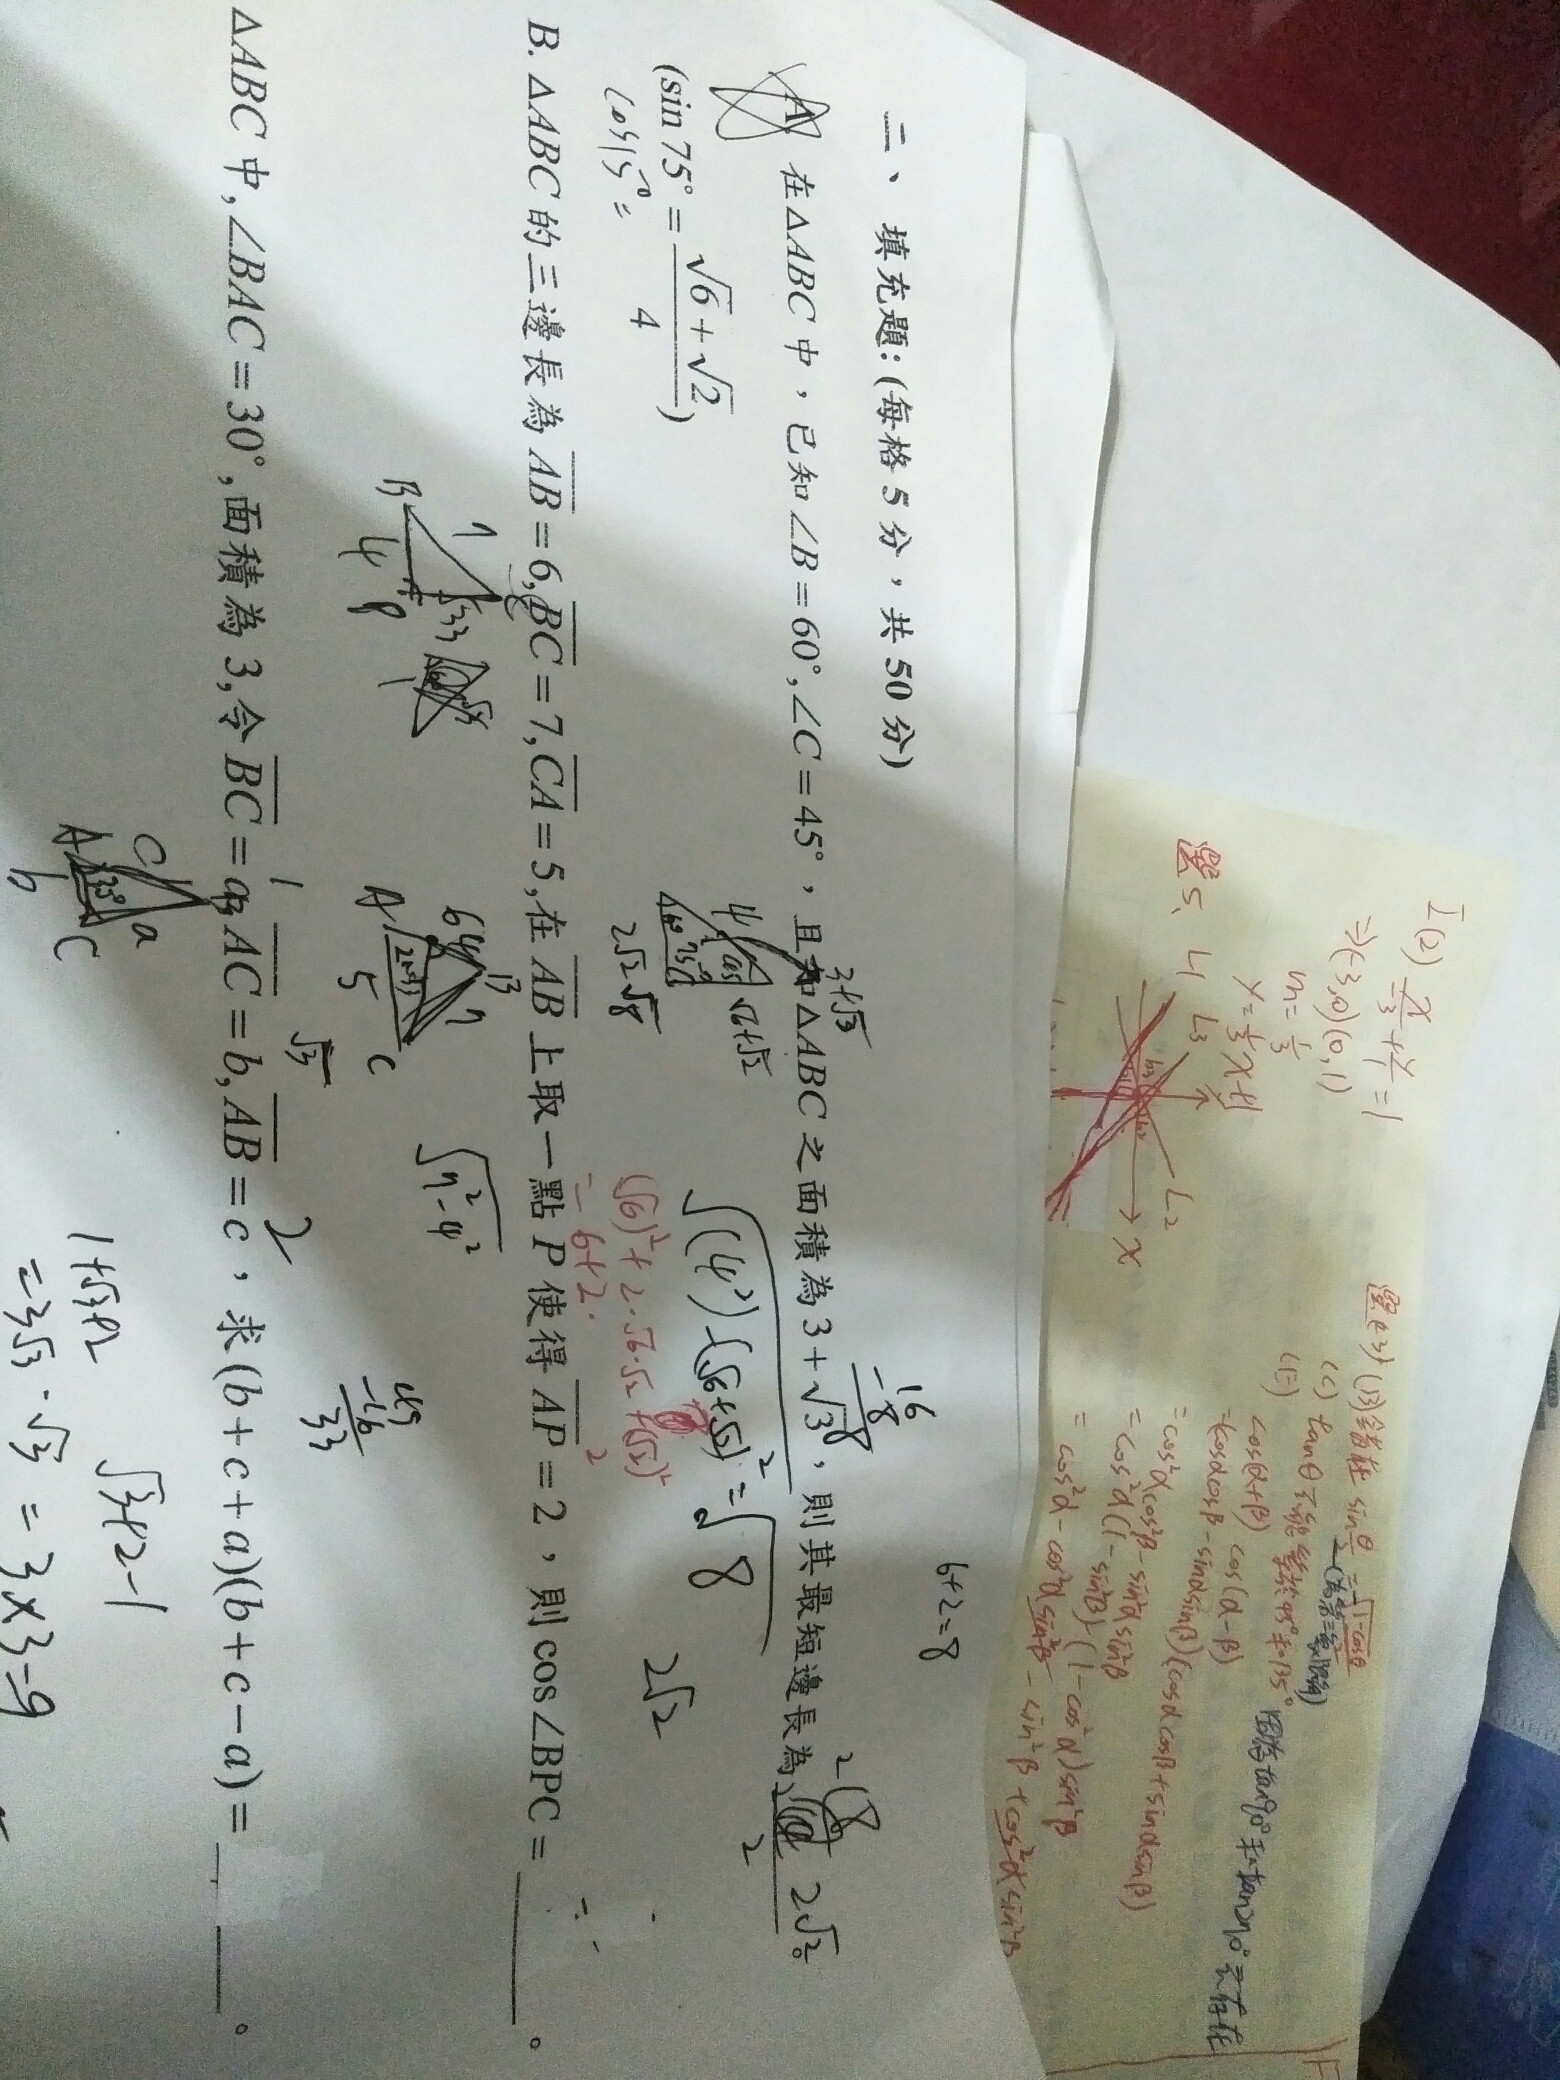 二、填充題:(每格5分，共50分)
A 在△ABC中，已知∠B=60°,∠C=45°，且知△ABC之面積為3+√3，則其最短邊長為 2√2。
(sin 75° = (√6+√2)/4)
cos15° =
3+√3
16
-8
8
6+2=8
4
√6+√2
2√2 √8
√(4²)-(√6+√2)² = √8
2√2
(√6)²+2·√6·√2+(√2)²
=6+2·
B. △ABC的三邊長為AB=6,BC=7,CA=5,在AB上取一點P使得AP=2，則cos∠BPC=______。
B 7 4 P √33
A 6 4 B 7 5 C
√7²-4²
49
-16
33
△ABC中,∠BAC=30°,面積為3,令BC=a,AC=b,AB=c，求(b+c+a)(b+c-a)=______。
1 √3 2
A b C a
1+√3+2 √3+2-1
=3√3·√3=3×3=9
I(2) x/-3+y/1=1
⇒(-3,0)(0,1)
m=1/3
y=1/3x+1
選5、L1 L3
L2
x
選(3)
(C) tanθ不能等於90°和135° 因為tan90°和tan270°不存在
(E) cos(α+β) cos(α-β)
=(cosαcosβ-sinαsinβ)(cosαcosβ+sinαsinβ)
=cos²αcos²β-sin²αsin²β
=cos²α(1-sin²β)-(1-cos²α)sin²β
=cos²α-cos²αsin²β-sin²β+cos²αsin²β